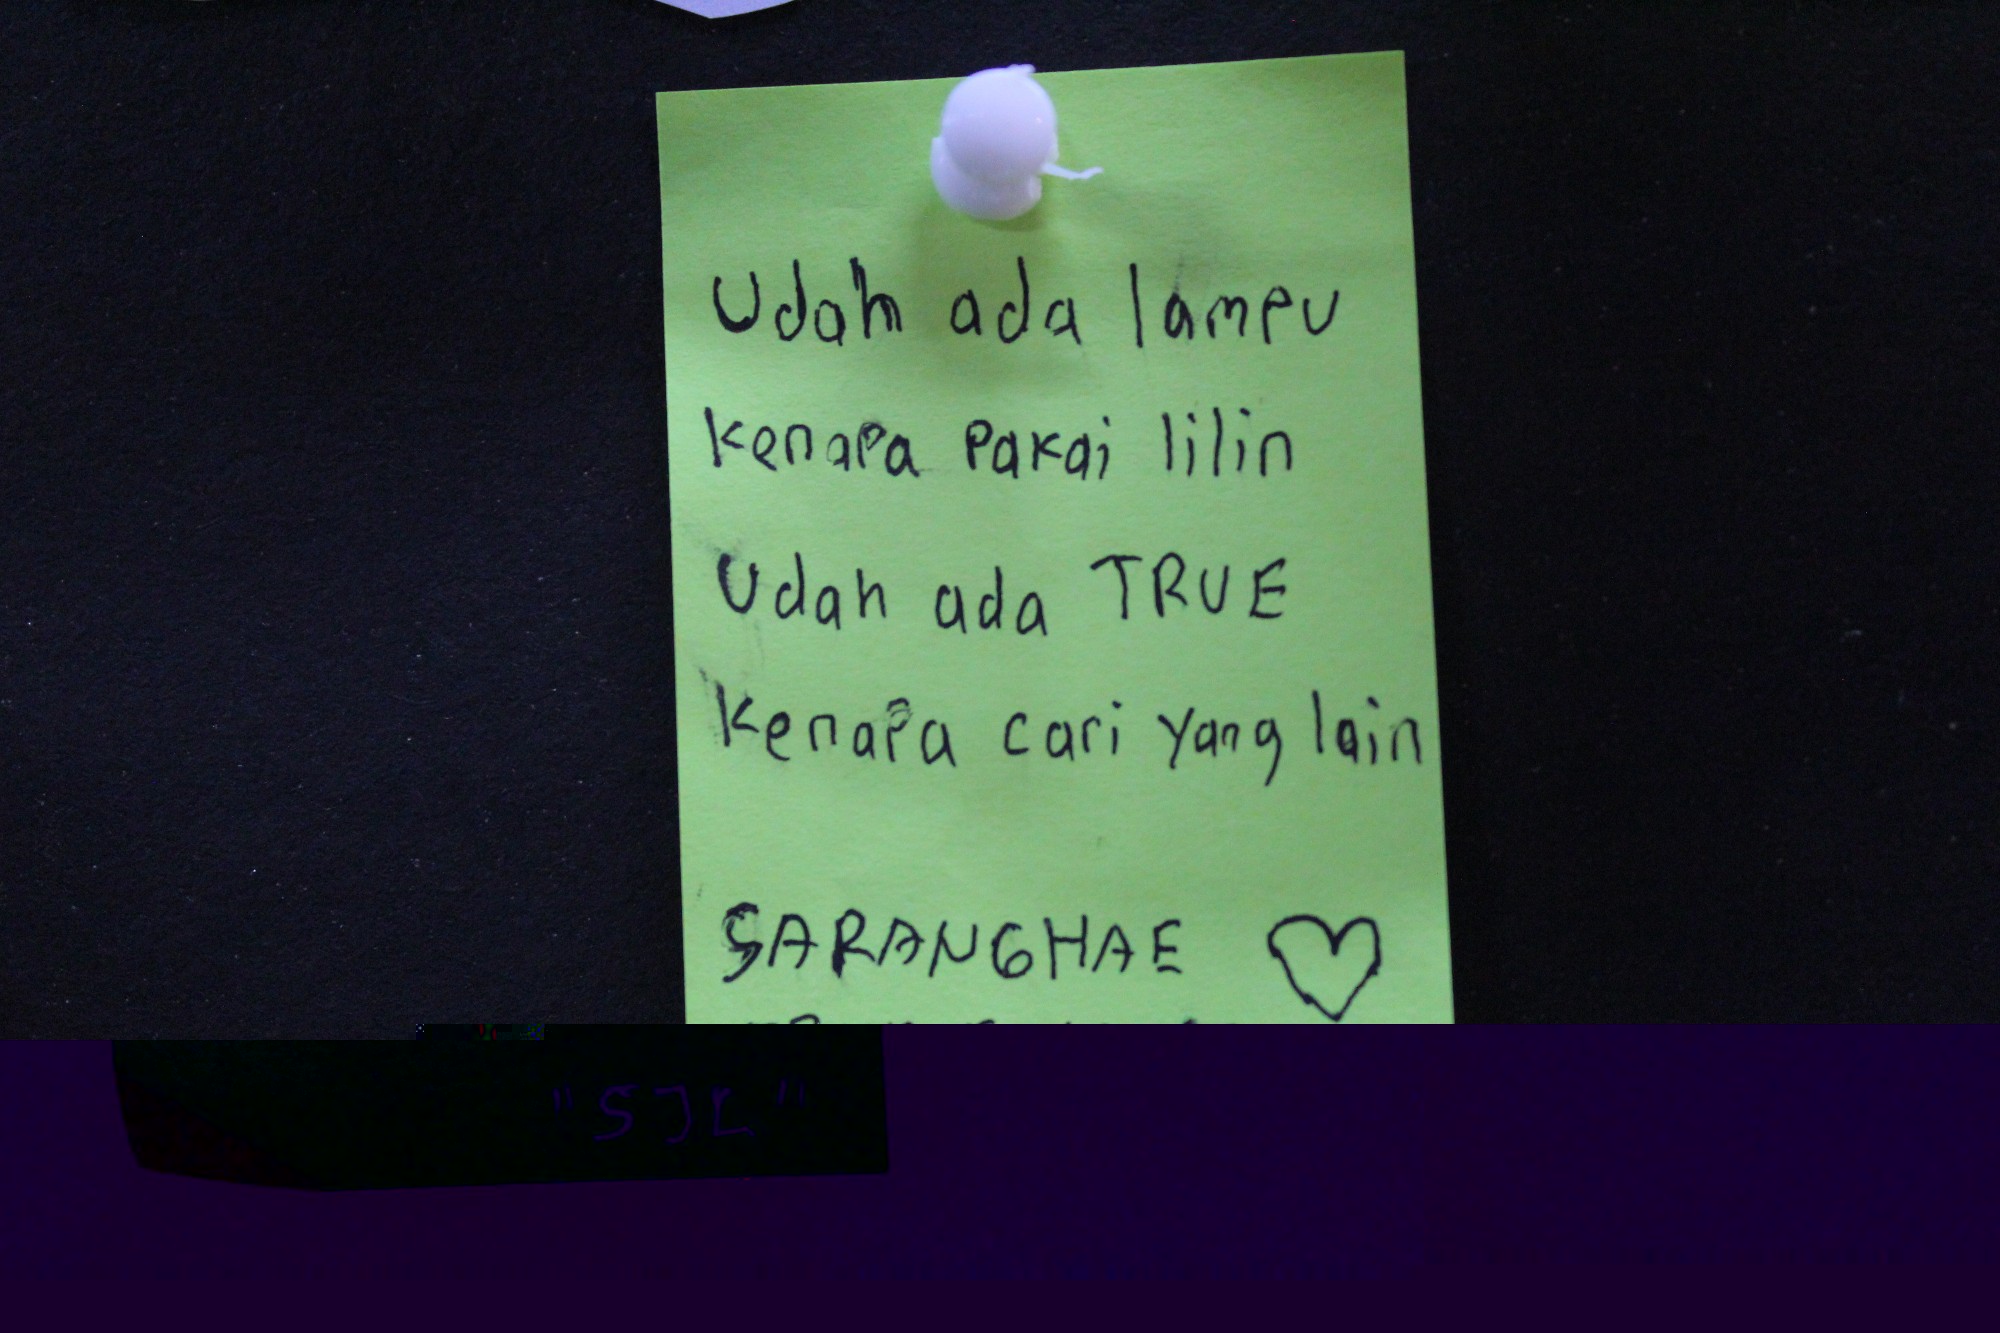 Udah ada lampu
kenapa pakai lilin
Udah ada TRUE
kenapa cari yang lain
SARANGHAE
"SJL"